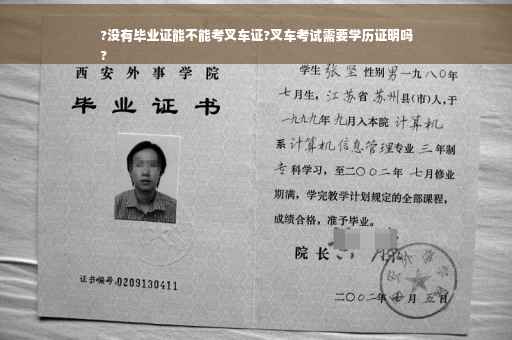 ?没有毕业证能不能考叉车证?叉车考试需要学历证明吗
?
西安外事学院
毕业证书
证书编号:0209130411
学生 张坚 性别男 一九八〇年
七月生,江苏省苏州县(市)人,于
一九九九年九月入本院 计算机
系 计算机信息管理专业 三 年制
专科学习,至二〇〇二年 七月修业
期满,学完教学计划规定的全部课程,
成绩合格,准予毕业。
院长
二〇〇二年 七 月 五 日